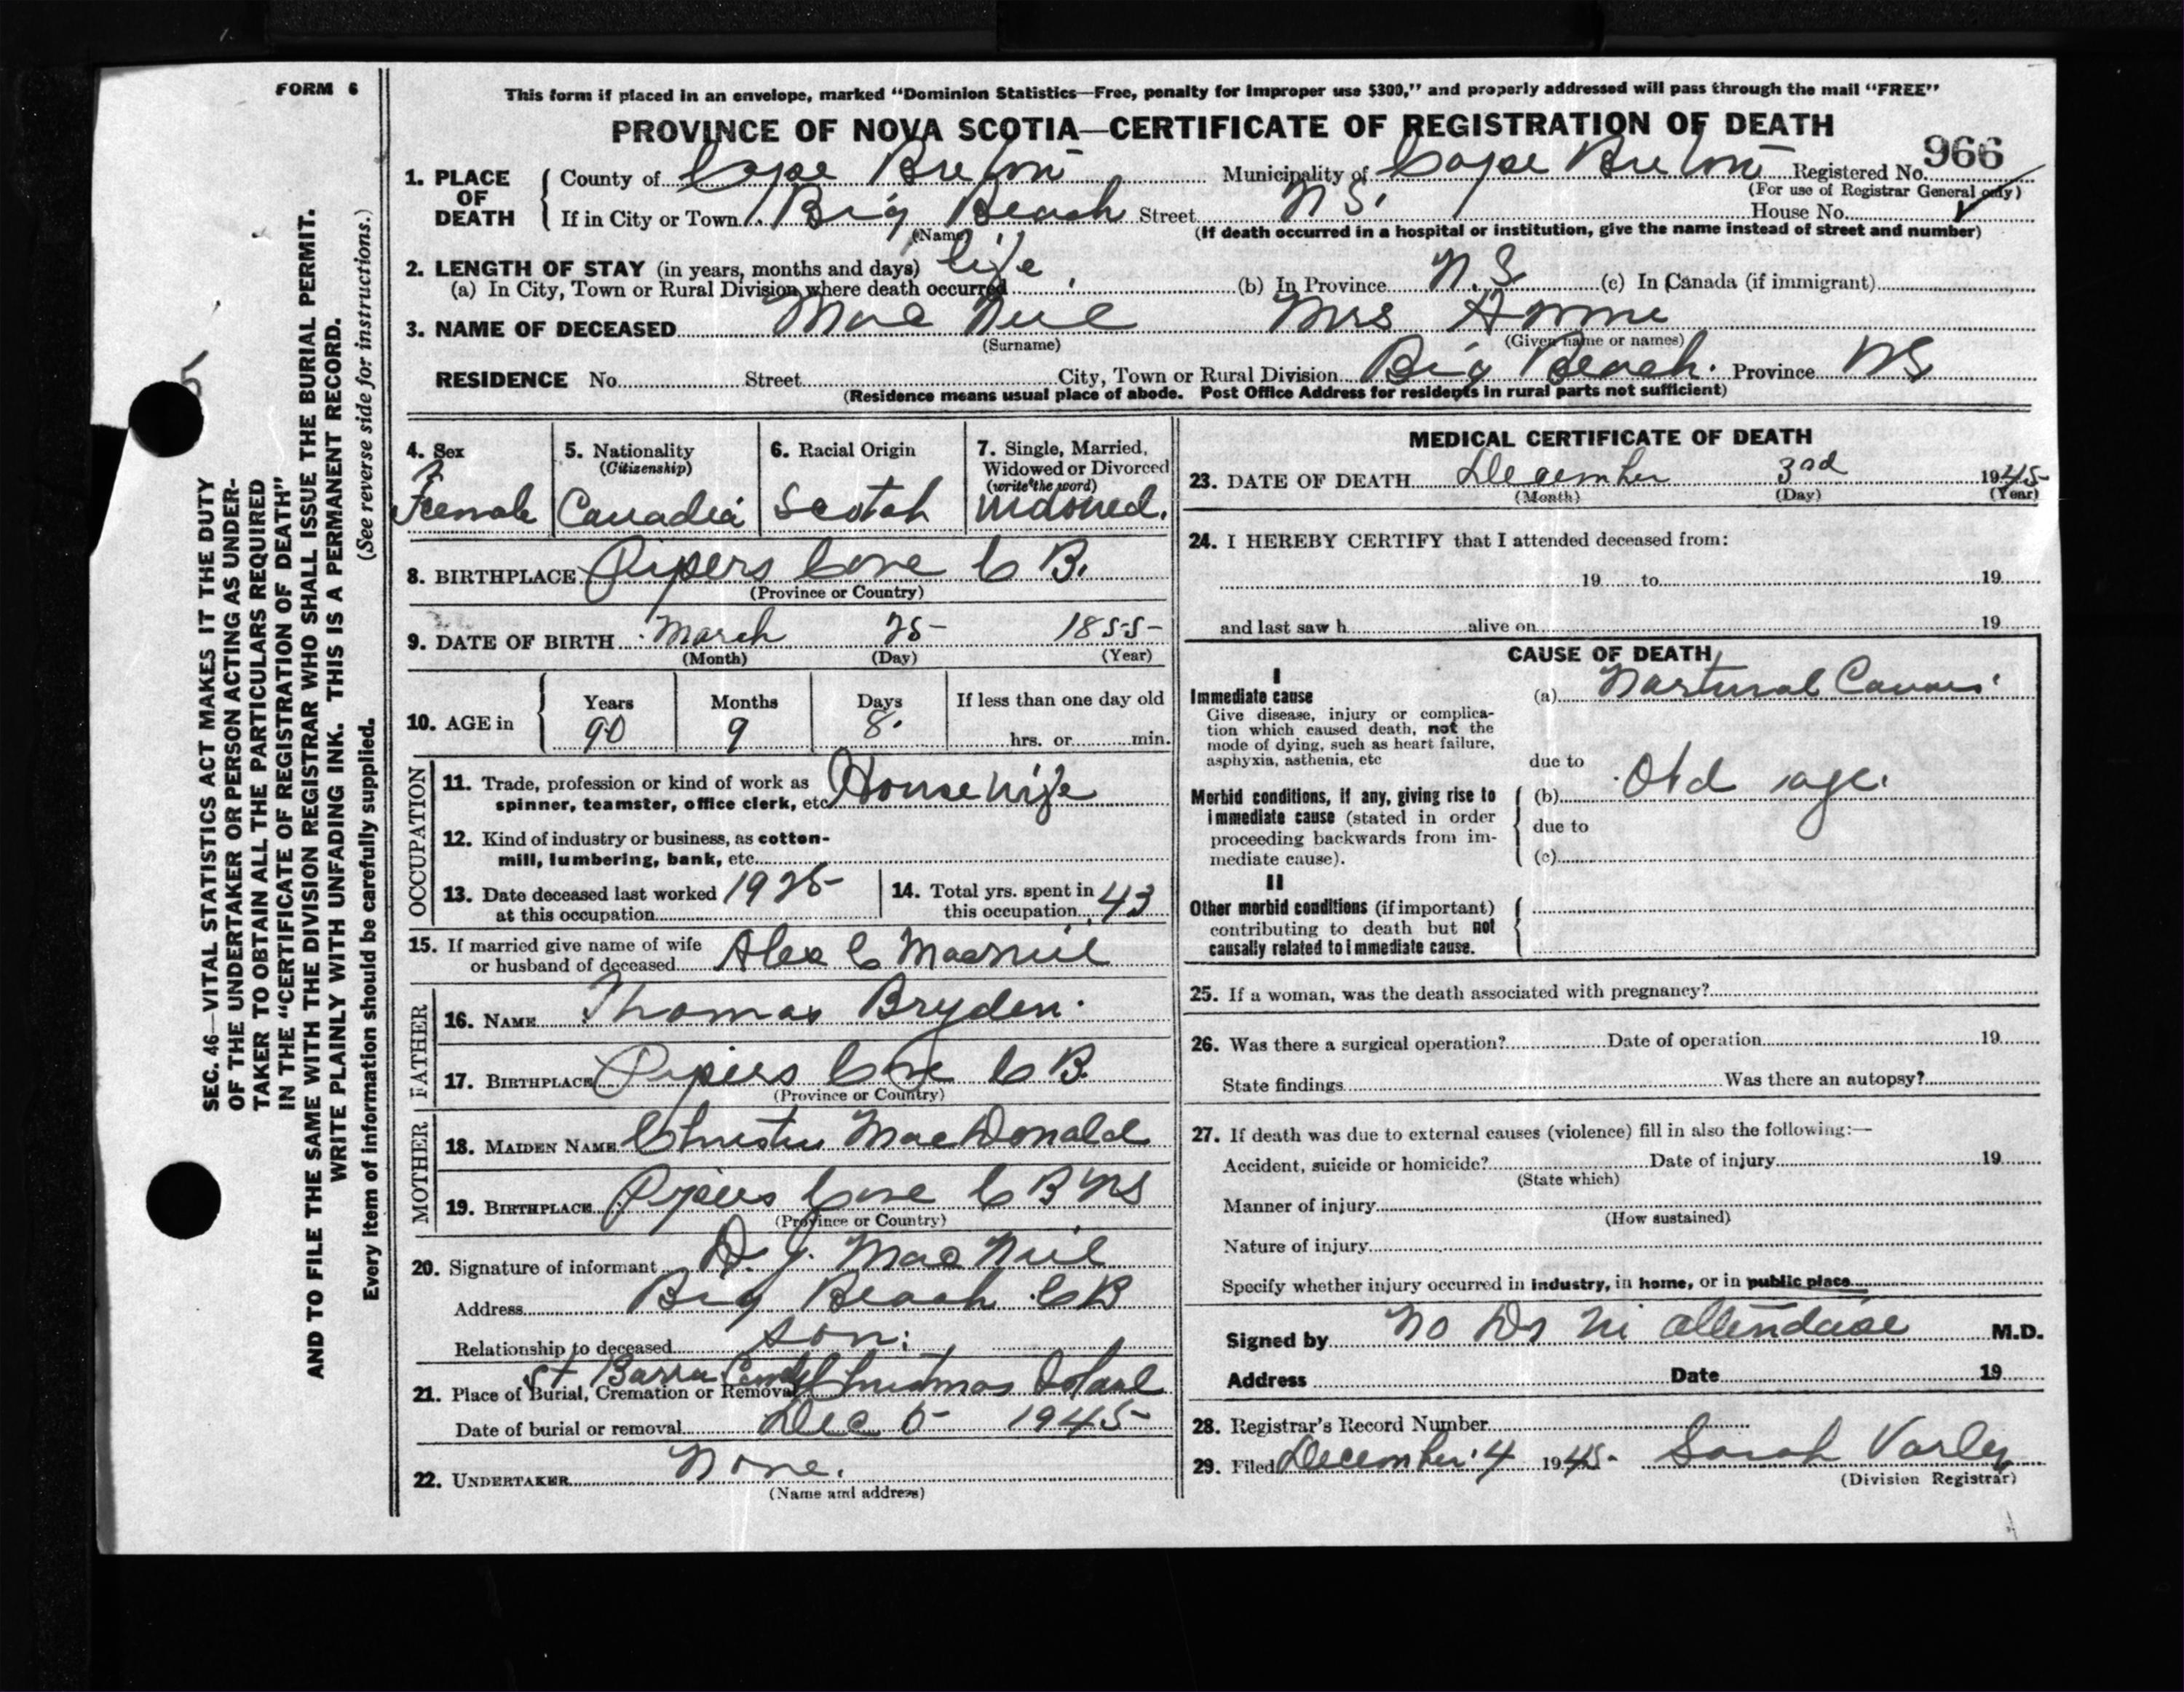 FORM 6
This form if placed in an envelope, marked "Dominion Statistics—Free, penalty for improper use $300," and properly addressed will pass through the mail "FREE"
PROVINCE OF NOVA SCOTIA—CERTIFICATE OF REGISTRATION OF DEATH
966
1. PLACE OF DEATH County of Cape Breton Municipality of Cape Breton Registered No.
(For use of Registrar General only)
If in City or Town Big Beach Street N S. House No.
(Name) (If death occurred in a hospital or institution, give the name instead of street and number)
2. LENGTH OF STAY (in years, months and days) life
(a) In City, Town or Rural Division where death occurred (b) In Province N.S (c) In Canada (if immigrant)
3. NAME OF DECEASED Mac Neil Mrs Annie
(Surname) (Given name or names)
RESIDENCE No. Street City, Town or Rural Division Big Beach. Province NS
(Residence means usual place of abode. Post Office Address for residents in rural parts not sufficient)
4. Sex
Female
5. Nationality
(Citizenship)
Canadia
6. Racial Origin
Scotch
7. Single, Married,
Widowed or Divorced
(write the word)
Widowed.
8. BIRTHPLACE Pipers Cove C B.
(Province or Country)
9. DATE OF BIRTH March 25 1855
(Month) (Day) (Year)
10. AGE in
Years Months Days If less than one day old
90 9 8. hrs. or min.
OCCUPATION
11. Trade, profession or kind of work as
spinner, teamster, office clerk, etc. Housewife
12. Kind of industry or business, as cotton-
mill, lumbering, bank, etc.
13. Date deceased last worked 1925
at this occupation
14. Total yrs. spent in
this occupation 43
15. If married give name of wife
or husband of deceased Alex C MacNeil
FATHER
16. NAME Thomas Bryden.
17. BIRTHPLACE Pipers Cove C B.
(Province or Country)
MOTHER
18. MAIDEN NAME Christie MacDonald
19. BIRTHPLACE Pipers Cove C B NS
(Province or Country)
20. Signature of informant D. J. Mac Neil
Address Big Beach C B
Relationship to deceased son
St Barra Cemety
21. Place of Burial, Cremation or Removal Christmas Island
Date of burial or removal Dec 5 1945
22. UNDERTAKER None.
(Name and address)
MEDICAL CERTIFICATE OF DEATH
23. DATE OF DEATH December 3rd 1945
(Month) (Day) (Year)
24. I HEREBY CERTIFY that I attended deceased from:
19 to 19
and last saw h alive on 19
CAUSE OF DEATH
I
Immediate cause (a) Nartural Causes
Give disease, injury or complica-
tion which caused death, not the
mode of dying, such as heart failure,
asphyxia, asthenia, etc
due to
Morbid conditions, if any, giving rise to (b) Old age.
immediate cause (stated in order
due to
proceeding backwards from im-
mediate cause). (c)
II
Other morbid conditions (if important)
contributing to death but not
causally related to immediate cause.
25. If a woman, was the death associated with pregnancy?
26. Was there a surgical operation? Date of operation 19
State findings Was there an autopsy?
27. If death was due to external causes (violence) fill in also the following:—
Accident, suicide or homicide? Date of injury 19
(State which)
Manner of injury
(How sustained)
Nature of injury
Specify whether injury occurred in industry, in home, or in public place
Signed by No Dr in attendance M.D.
Address Date 19
28. Registrar's Record Number
29. Filed December 4 1945 Sarah Varley
(Division Registrar)
SEC. 46—VITAL STATISTICS ACT MAKES IT THE DUTY
OF THE UNDERTAKER OR PERSON ACTING AS UNDER-
TAKER TO OBTAIN ALL THE PARTICULARS REQUIRED
IN THE "CERTIFICATE OF REGISTRATION OF DEATH"
AND TO FILE THE SAME WITH THE DIVISION REGISTRAR WHO SHALL ISSUE THE BURIAL PERMIT.
WRITE PLAINLY WITH UNFADING INK. THIS IS A PERMANENT RECORD.
(See reverse side for instructions.)
Every item of information should be carefully supplied.